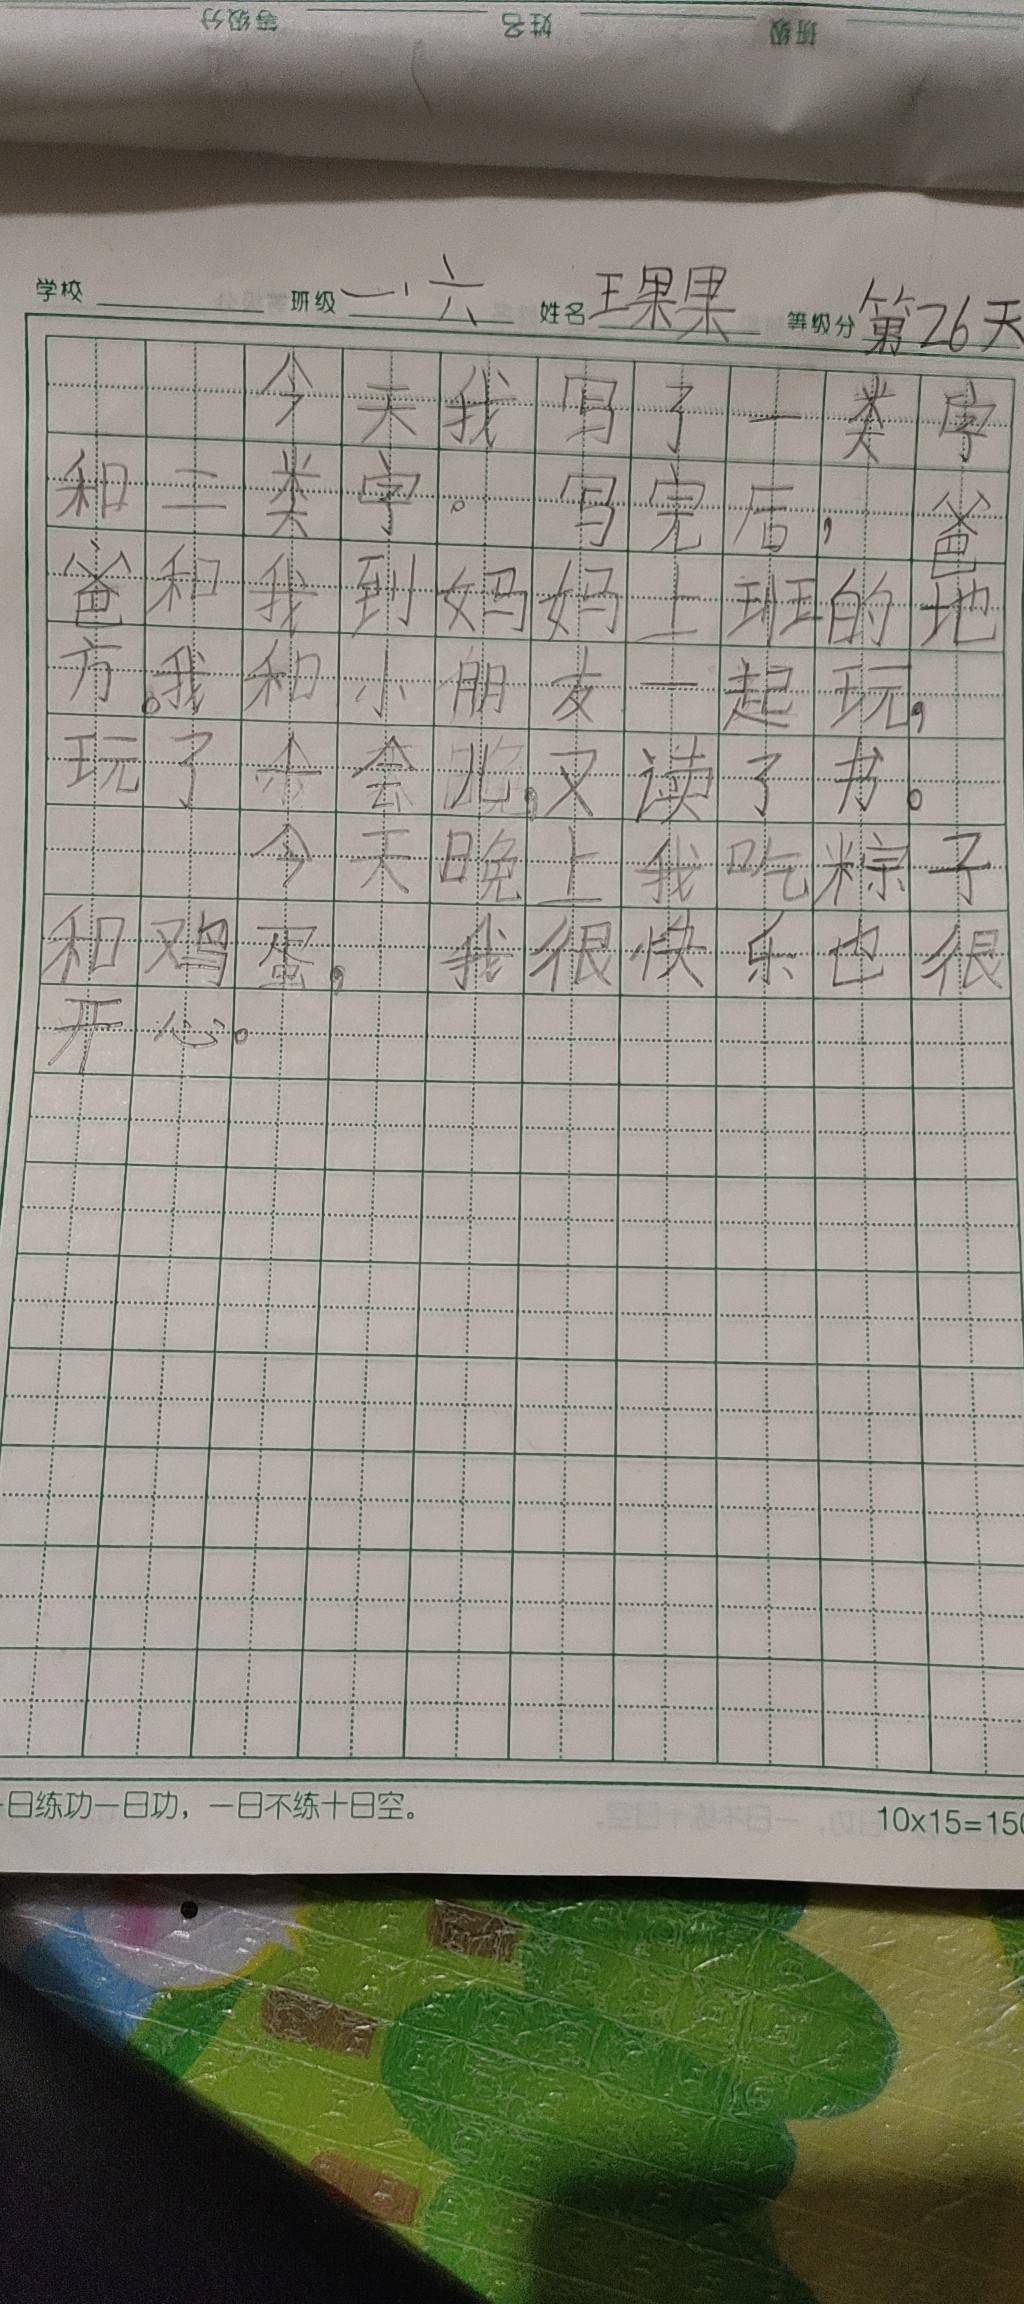 等级分 姓名 班级
学校 班级 一.六 姓名 王果果 等级分 第26天
今天我写了一类字
和二类字。写完后，爸
爸和我到妈妈上班的地
方。我和小朋友一起玩，
玩了会，又读了书。
今天晚上我吃粽子
和鸡蛋，我很快乐也很
开心。
一日练功一日功，一日不练十日空。
10x15=150